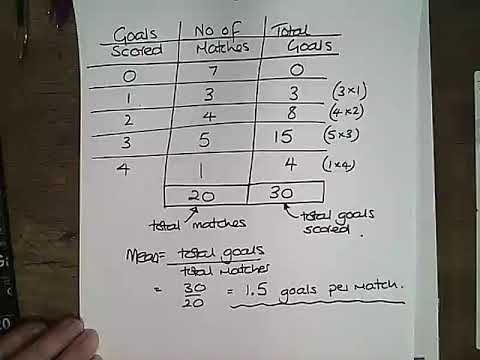 Goals Scored No of Matches Total Goals
0 7 0
1 3 3 (3×1)
2 4 8 (4×2)
3 5 15 (5×3)
4 1 4 (1×4)
20 30
total matches total goals scored.
Mean = total goals
total matches
= 30/20 = 1.5 goals per match.